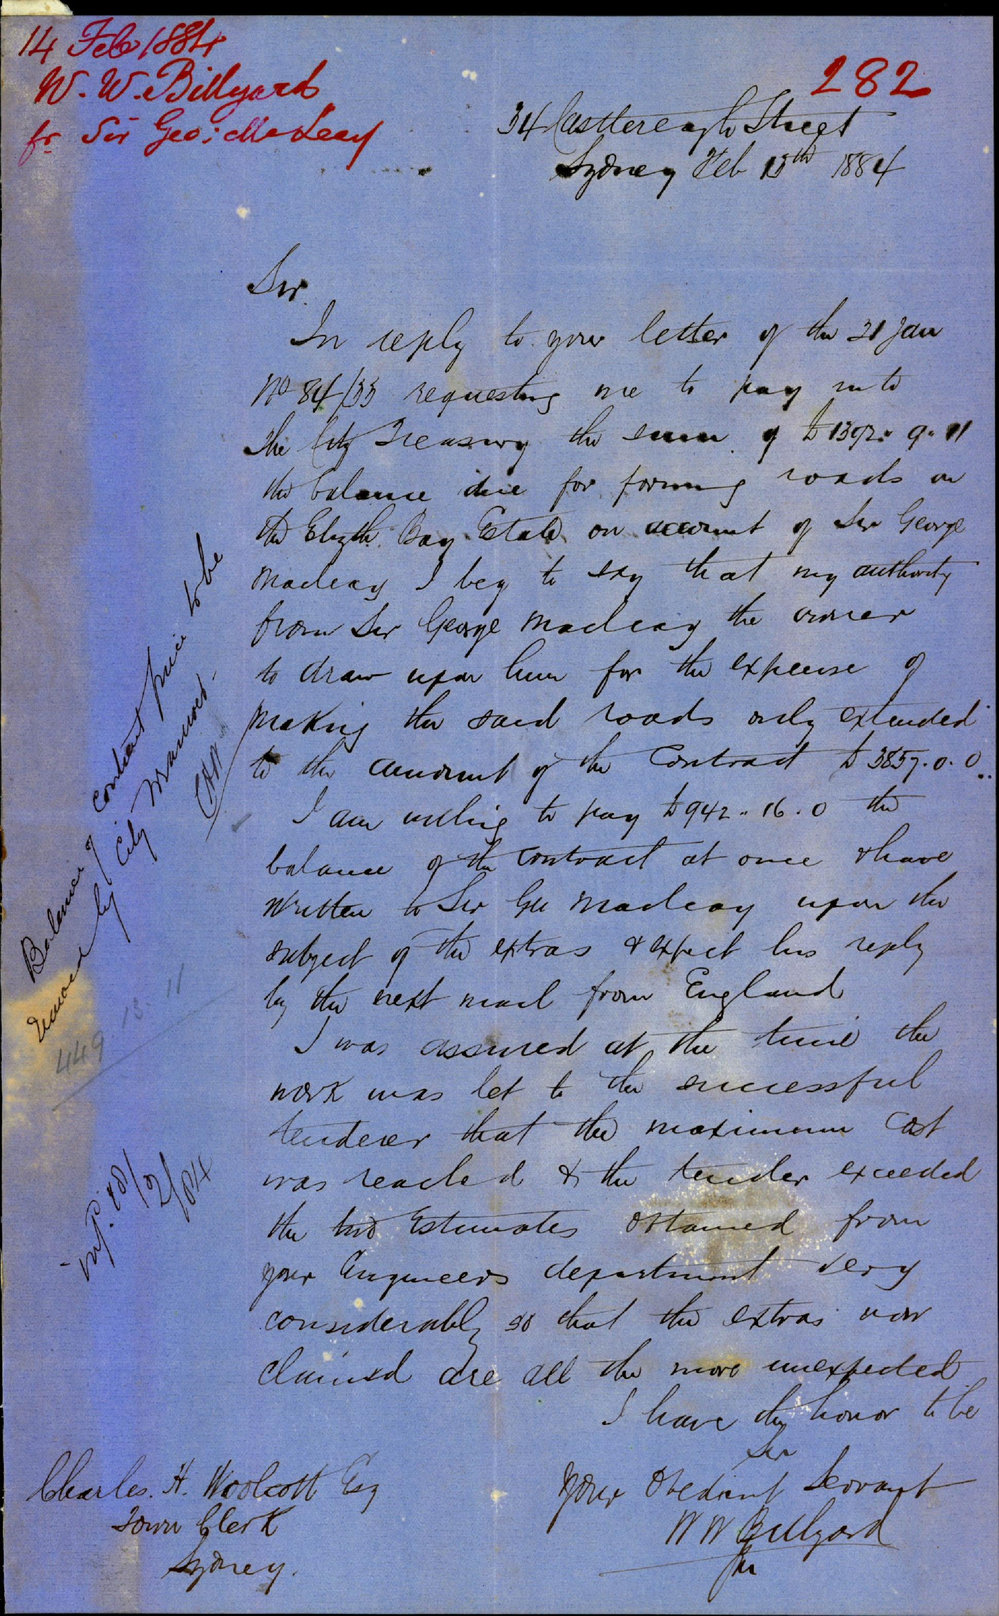 14 Feb 1884
W. W. Billyard
fr Sir Geo: Macleay
282
34 Castlereagh Street
Sydney Feb 13th 1884
Sir
In reply to your letter of the 31 Jan
No 84/133 requesting me to pay into
the City Treasury the sum of £1392. 9. 11
the balance due for forming roads on
the Elizth. Bay Estate on account of Sir George
Macleay I beg to say that my authority
from Sir George Macleay the owner
to draw upon him for the expense of
making the said roads only extended
to the amount of the Contract £3857. 0. 0.
I am willing to pay £942. 16. 0 the
balance of the Contract at once & have
written to Sir Geo Macleay upon the
subject of the extras & expect his reply
by the next mail from England
I was assured at the time the
work was let to the successful
tenderer that the maximum cost
was reached & the tender exceeded
the two Estimates obtained from
your Engineers department very
considerably so that the extras now
claimed are all the more unexpected
I have the honor to be
Sir
Your Obedient Servant
W W Billyard
Charles. H. Woolcott Esq
Town Clerk
Sydney.
Balance of contract price to be
received by City Treasurer.
CHW
449 13. 11
/2/84